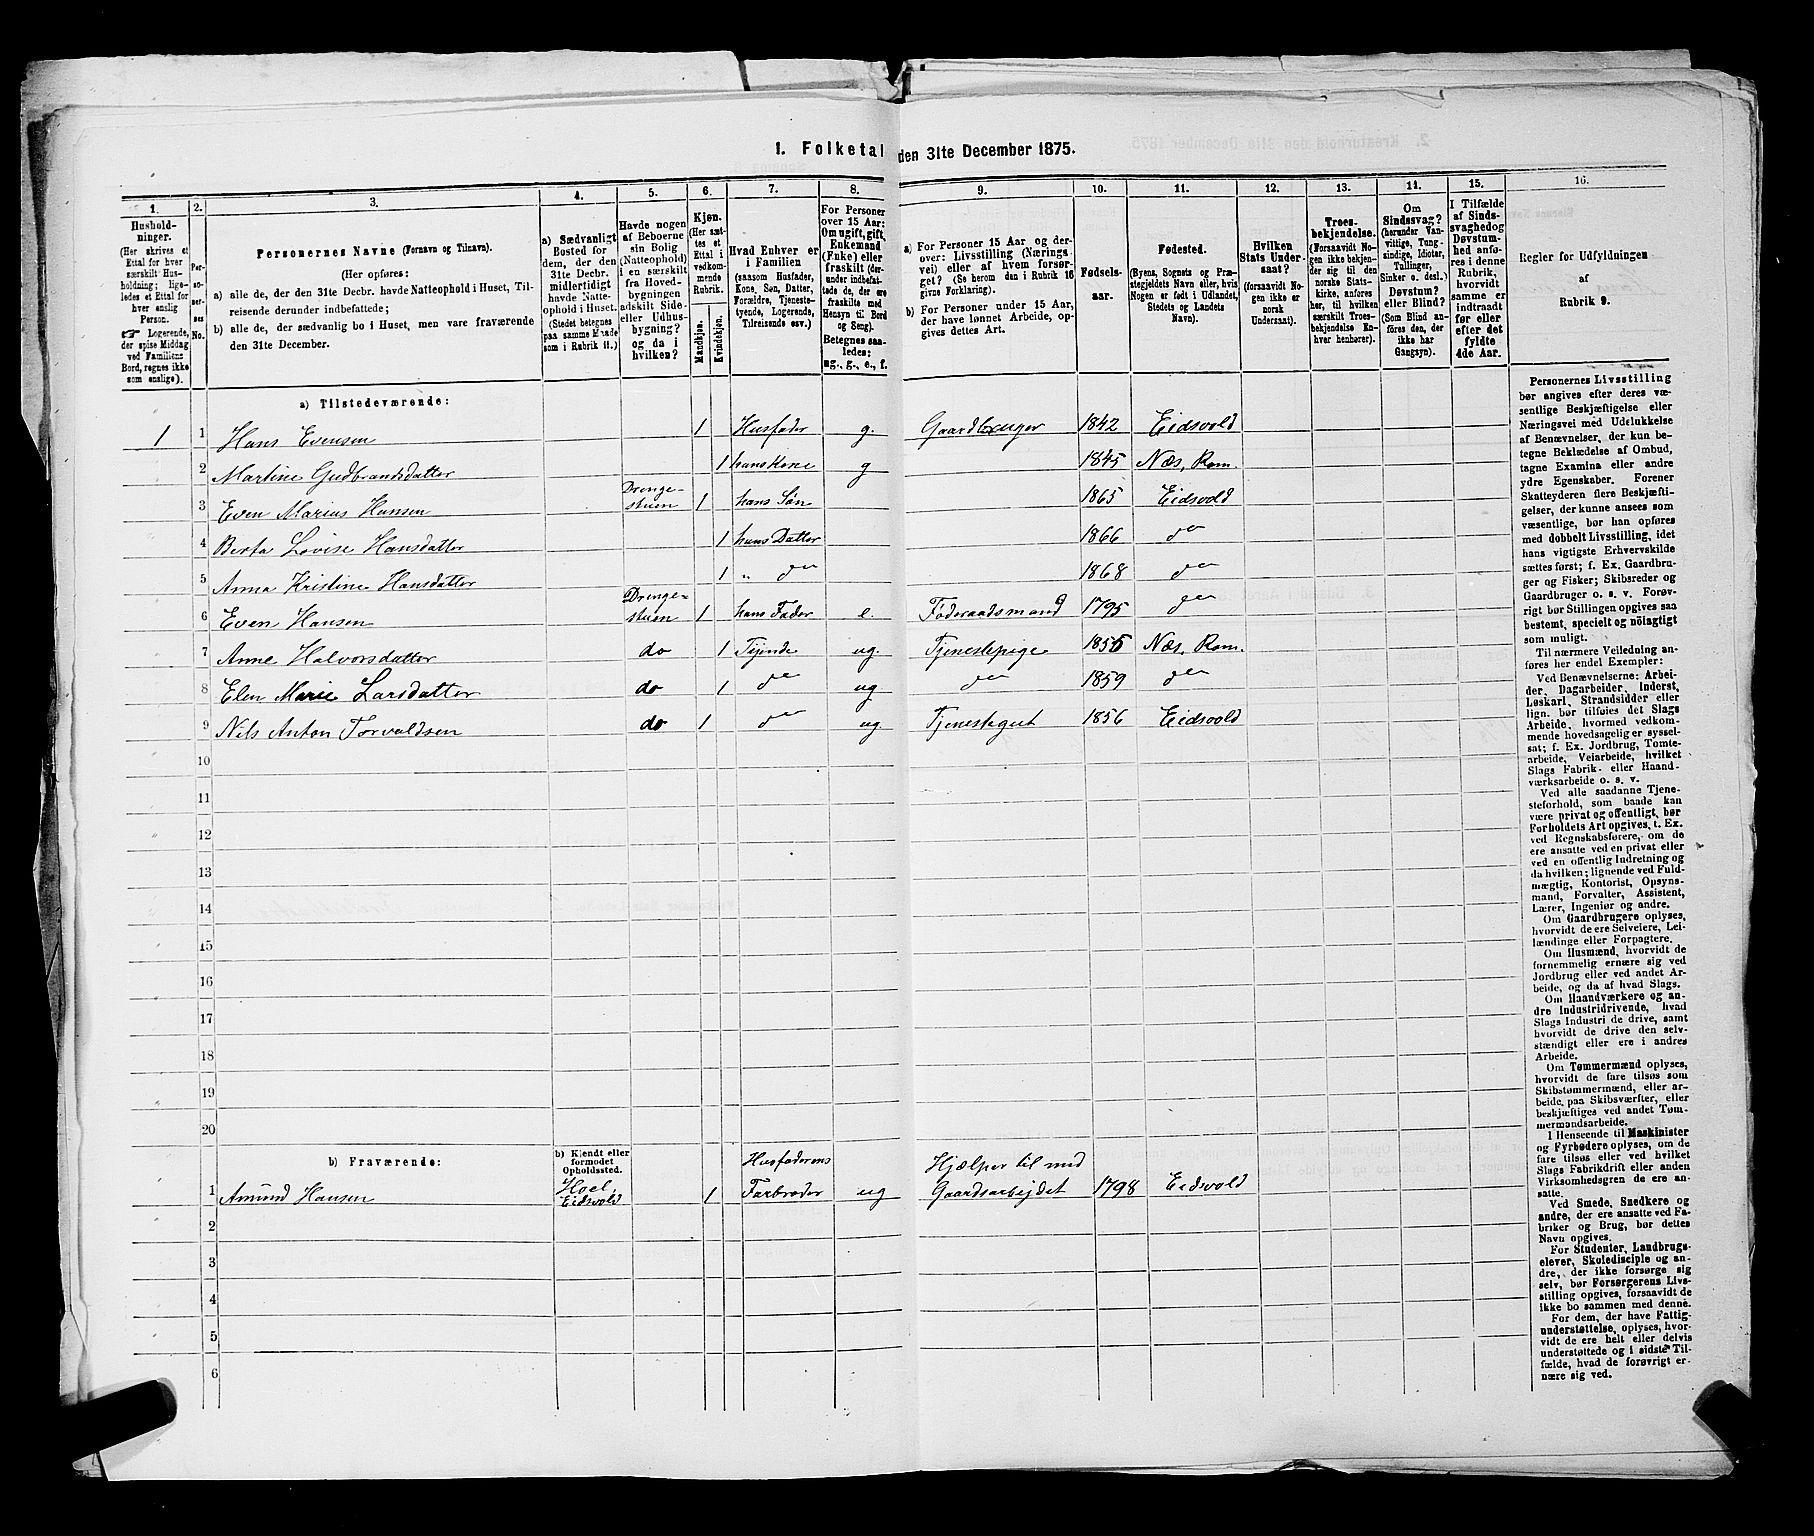 1. Folketal den 31te December 1875.
1. 2. 3. 4. 5. 6. 7. 8. 9. 10. 11. 12. 13. 14. 15. 16.
Hushold-
ninger.
(Her skrives et
Ettal for hver
særskilt Hus-
holdning; lige-
ledes et Ettal for
hver enslig
Person.
☞ Logerende,
der spise Middag
ved Familiens
Bord, regnes ikke
som enslige).
Per-
so-
ner-
nes
No.
Personernes Navne (Fornavn og Tilnavn).
(Her opføres:
a) alle de, der den 31te Decbr. havde Natteophold i Huset, Til-
reisende derunder indbefattede;
b) alle de, der sædvanlig bo i Huset, men vare fraværende
den 31te December.
a) Sædvanligt
Bosted for
dem, der den
31te Decbr.
midlertidigt
havde Natte-
ophold i Huset.
(Stedet betegnes
paa samme Maade
som i Rubrik 11.)
Havde nogen
af Beboerne
sin Bolig
(Natteophold)
i en særskilt
fra Hoved-
bygningen
adskilt Side-
eller Udhus-
bygning?
og da i
hvilken?
Kjøn.
(Her sæt-
tes et
Ettal i
vedkom-
mende
Rubrik.
Mandkjøn.
Kvindekjøn.
Hvad Enhver er
i Familien
(saasom Husfader,
Kone, Søn, Datter,
Forældre, Tjeneste-
tyende, Logerende,
Tilreisende osv.)
For Personer
over 15 Aar:
Om ugift, gift,
Enkemand
(Enke) eller
fraskilt (der-
under indbefat-
tede de, der ere
fraskilte med
Hensyn til Bord
og Seng).
Betegnes saa-
ledes:
ug., g., e., f.
a) For Personer 15 Aar og der-
over: Livsstilling (Nærings-
vei) eller af hvem forsør-
get? (Se herom den i Rubrik 16
givne Forklaring).
b) For Personer under 15 Aar,
der have lønnet Arbeide, op-
gives dettes Art.
Fødsels-
aar.
Fødested.
(Byens, Sognets og Præ-
stegjeldets Navn eller, hvis
Nogen er født i Udlandet,
Stedets og Landets
Navn).
Hvilken
Stats Under-
saat?
(forsaavidt No-
gen ikke er
norsk
Undersaat).
Troes-
bekjendelse.
(Forsaavidt No-
gen ikke bekjen-
der sig til den
norske Stats-
kirke, anføres
her, til hvilken
særskilt Troes-
bekjendelse En-
hver henhører).
Om
Sindssvag?
(herunder Van-
vittige, Tung-
sindige, Idioter,
Tullinger,
Sinker o. desl.)
Døvstum?
eller Blind?
(Som Blind an-
føres den, der
ikke har
Gangsyn).
I Tilfælde
af Sinds-
svaghed og
Døvstum-
hed anfø-
res i denne
Rubrik,
hvorvidt
samme er
indtraadt
før eller
efter det
fyldte
4de Aar.
Regler for Udfyldningen
af
Rubrik 9.
a) Tilstedeværende:
1 1 Hans Evensen 1 Husfader g. Gaardbruger 1842 Eidsvold
2 Martine Gudbrandsdatter 1 hans Kone g 1845 Næs, Rom.
3 Even Marius Hansen Drenge-
stuen 1 hans Søn 1865 Eidsvold
4 Berta Lovise Hansdatter 1 hans Datter 1866 do
5 Anna Kristine Hansdatter 1 " do 1868 do
6 Even Hansen Drenge-
stuen 1 hans Fader e. Føderaadsmand 1795 do
7 Anne Halvorsdatter do 1 Tjende ug Tjenestepige 1855 Næs, Rom.
8 Elen Marie Larsdatter do 1 do ug do 1859 do
9 Nils Anton Torvaldsen do 1 do ug Tjenestegut 1856 Eidsvold
10
11
12
13
14
15
16
17
18
19
20
b) Fraværende:
b) Kjendt eller
formodet
Opholdssted.
1 Amund Hansen Hoel,
Eidsvold 1 Husfaderens
Farbroder ug Hjælper til med
Gaardsarbejdet 1798 Eidsvold
2
3
4
5
6
Personernes Livsstilling
bør angives efter deres væ-
sentlige Beskjæftigelse eller
Næringsvei med Udelukkelse
af Benævnelser, der kun be-
tegne Beklædelse af Ombud,
tagne Examina eller andre
ydre Egenskaber. Forener
Skatteyderen flere Beskjæfti-
gelser, der kunne ansees som
væsentlige, bør han opføres
med dobbelt Livsstilling, idet
hans vigtigste Erhvervskilde
sættes først; f. Ex. Gaardbru-
ger og Fisker; Skibsreder og
Gaardbruger o. s. v. Forøv-
rigt bør Stillingen opgives saa
bestemt, specielt og nöiagtigt
som muligt.
Til nærmere Veiledning an-
føres her endel Exempler:
Ved Benævnelserne: Arbei-
der, Dagarbeider, Inderst,
Løskarl, Strandsidder eller
lign. bør tilføies det Slags
Arbeide, hvormed vedkom-
mende hovedsagelig er syssel-
sat; f. Ex. Jordbrug, Tomte-
arbeide, Veiarbeide, hvilket
Slags Fabrik- eller Haand-
værksarbeide o. s. v.
Ved alle saadanne Tjene-
steforhold, som baade kan
være privat og offentligt, bør
Forholdets Art opgives, t. Ex.
ved Regnskabsførere, om de
ere ansatte ved en privat eller
ved en offentlig Indretning og
da hvilken; lignende ved Fuld-
mægtig, Kontorist, Opsyns-
mand, Forvalter, Assistent,
Lærer, Ingeniør og andre.
Om Gaardbrugere oplyses,
hvorvidt de ere Selveiere, Lei-
lændinge eller Forpagtere.
Om Husmænd, hvorvidt de
fornemmelig ernære sig ved
Jordbrug eller ved andet Ar-
beide, og da af hvad Slags.
Om Haandværkere og an-
dre Industridrivende, hvad
Slags Industri de drive, samt
hvorvidt de drive den selv-
stændigt eller ere i andres
Arbeide.
Om Tømmermænd oplyses,
hvorvidt de fare tilsøs som
Skibstømmermænd, eller ar-
beide paa Skibsværfter, eller
beskjæftiges ved andet Tøm-
mermandsarbeide.
I Henseende til Maskinister
og Fyrbødere oplyses, om de
fare tilsøs eller ved hvilket
Slags Fabrikdrift eller anden
Virksomhedsgren de ere an-
satte.
Ved Smede, Snedkere og
andre, der ere ansatte ved Fa-
briker og Brug, bør dettes
Navn opgives.
For Studenter, Landbrugs-
elever, Skoledisciple og an-
dre, der ikke forsørge sig
selv, bør Forsørgerens Livs-
stilling opgives, forsaavidt de
ikke bo sammen med denne.
For dem, der have Fattig-
understøttelse, oplyses, hvor-
vidt de ere helt eller delvis
understøttede og i sidste Til-
fælde, hvad de forøvrigt er-
nære sig ved.